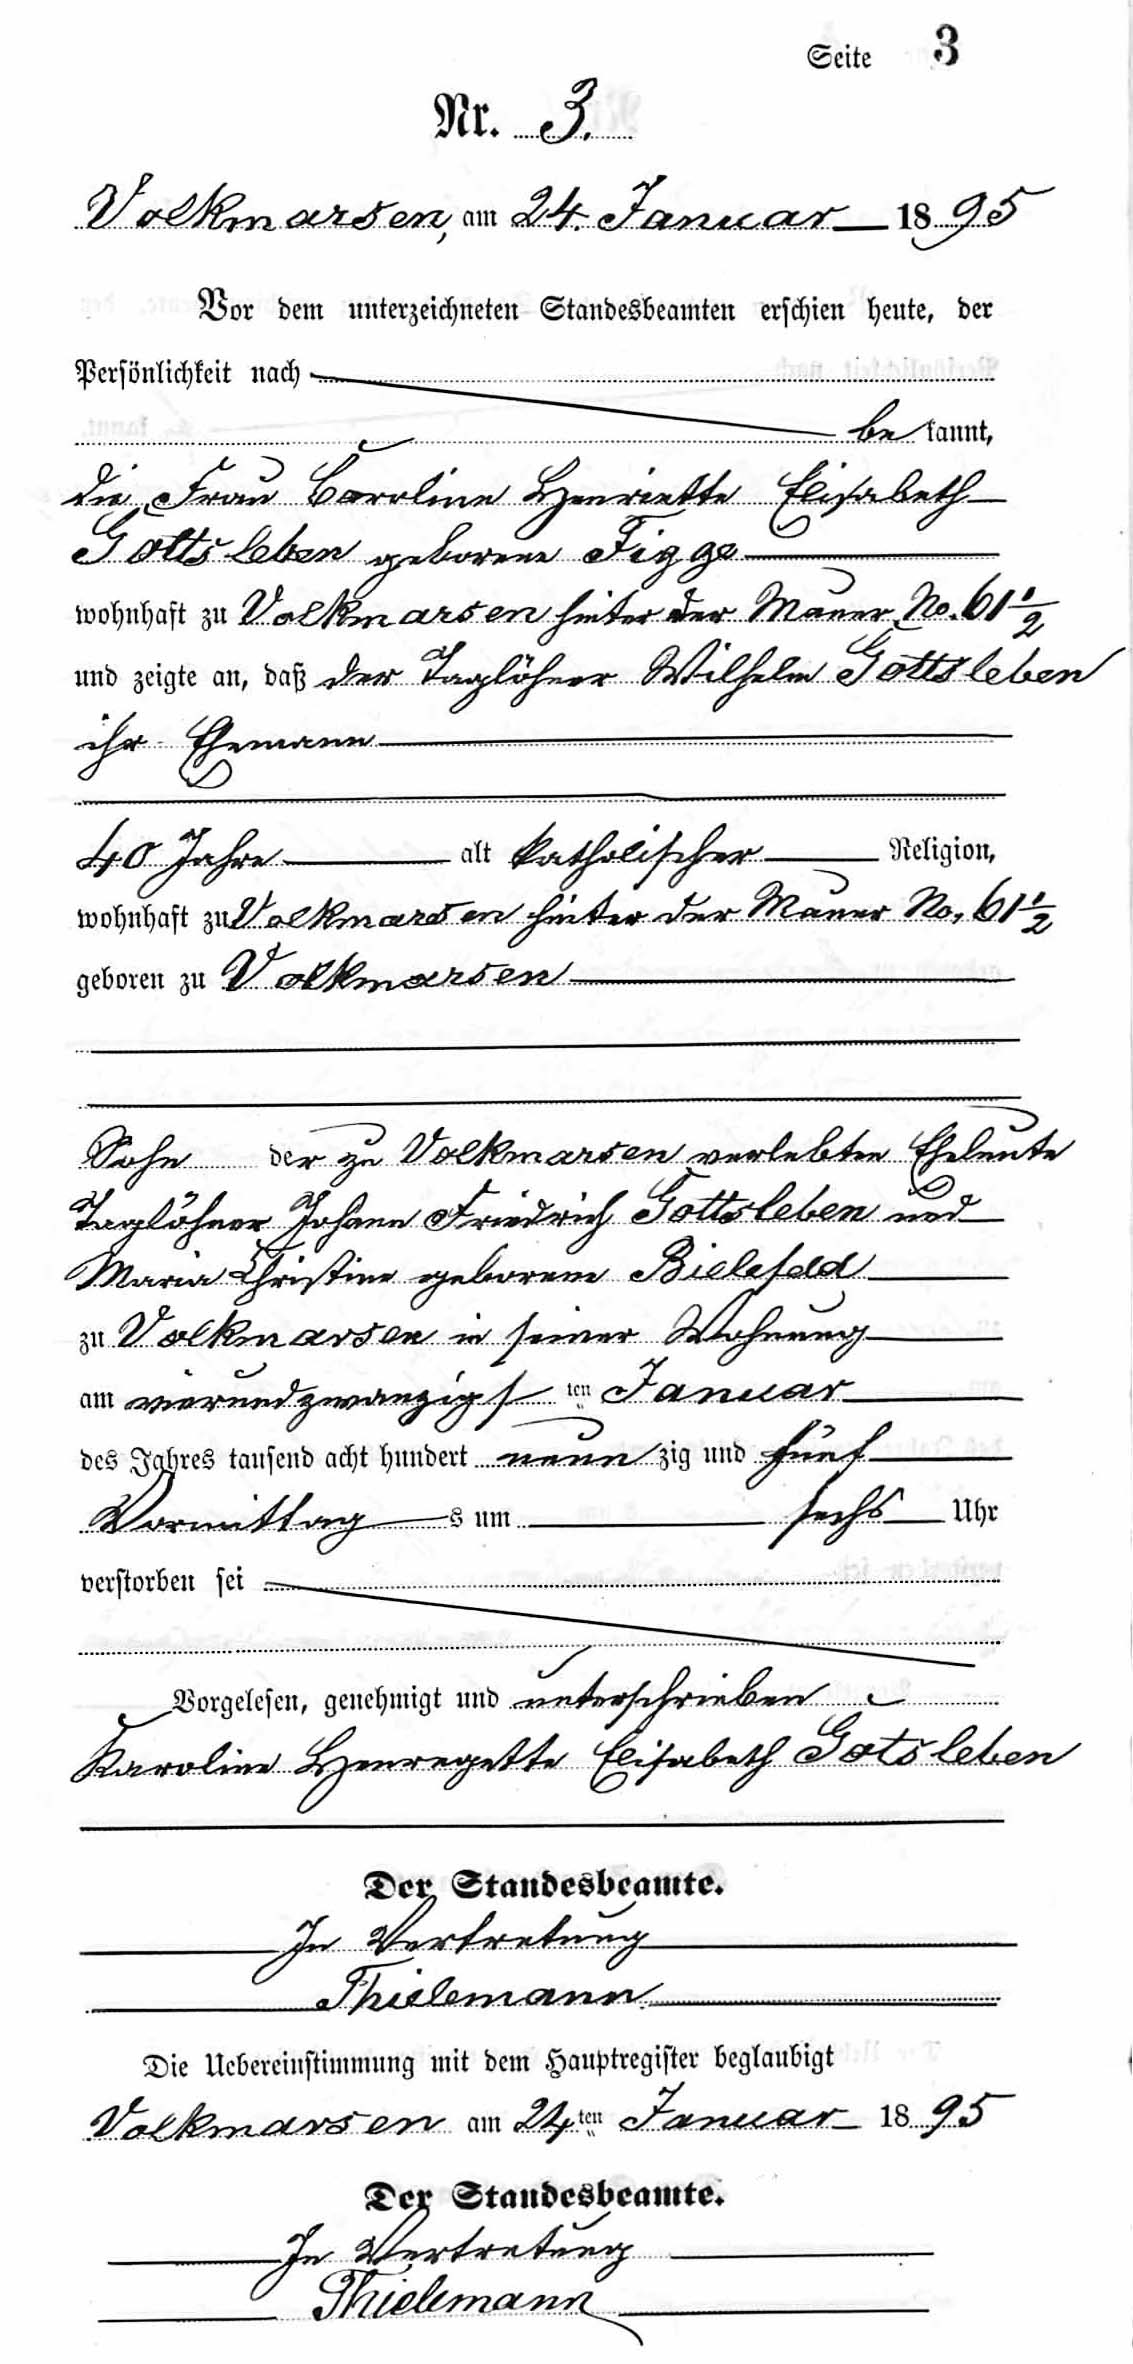 Seite 3
Nr. 3.
Volkmarsen, am 24. Januar 1895
Vor dem unterzeichneten Standesbeamten erschien heute, der
Persönlichkeit nach
be kannt,
die Frau Caroline Henriette Elisabeth
Gottsleben geborene Figge
wohnhaft zu Volkmarsen hinter der Mauer No. 61 1/2
und zeigte an, daß der Taglöhner Wilhelm Gottsleben
ihr Ehemann
40 Jahre alt katholischer Religion,
wohnhaft zu Volkmarsen hinter der Mauer No. 61 1/2
geboren zu Volkmarsen
Sohn der zu Volkmarsen verlebten Eheleute
Taglöhner Johann Friedrich Gottsleben und
Maria Christine geborene Bielefeld
zu Volkmarsen in seiner Wohnung
am vierundzwanzigsten Januar
des Jahres tausend acht hundert neun zig und fünf
Vormittags um sechs Uhr
verstorben sei
Vorgelesen, genehmigt und unterschrieben
Karoline Henregette Elisabeth Gotsleben
Der Standesbeamte.
In Vertretung
Thielemann
Die Uebereinstimmung mit dem Hauptregister beglaubigt
Volkmarsen am 24ten Januar 1895
Der Standesbeamte.
In Vertretung
Thielemann